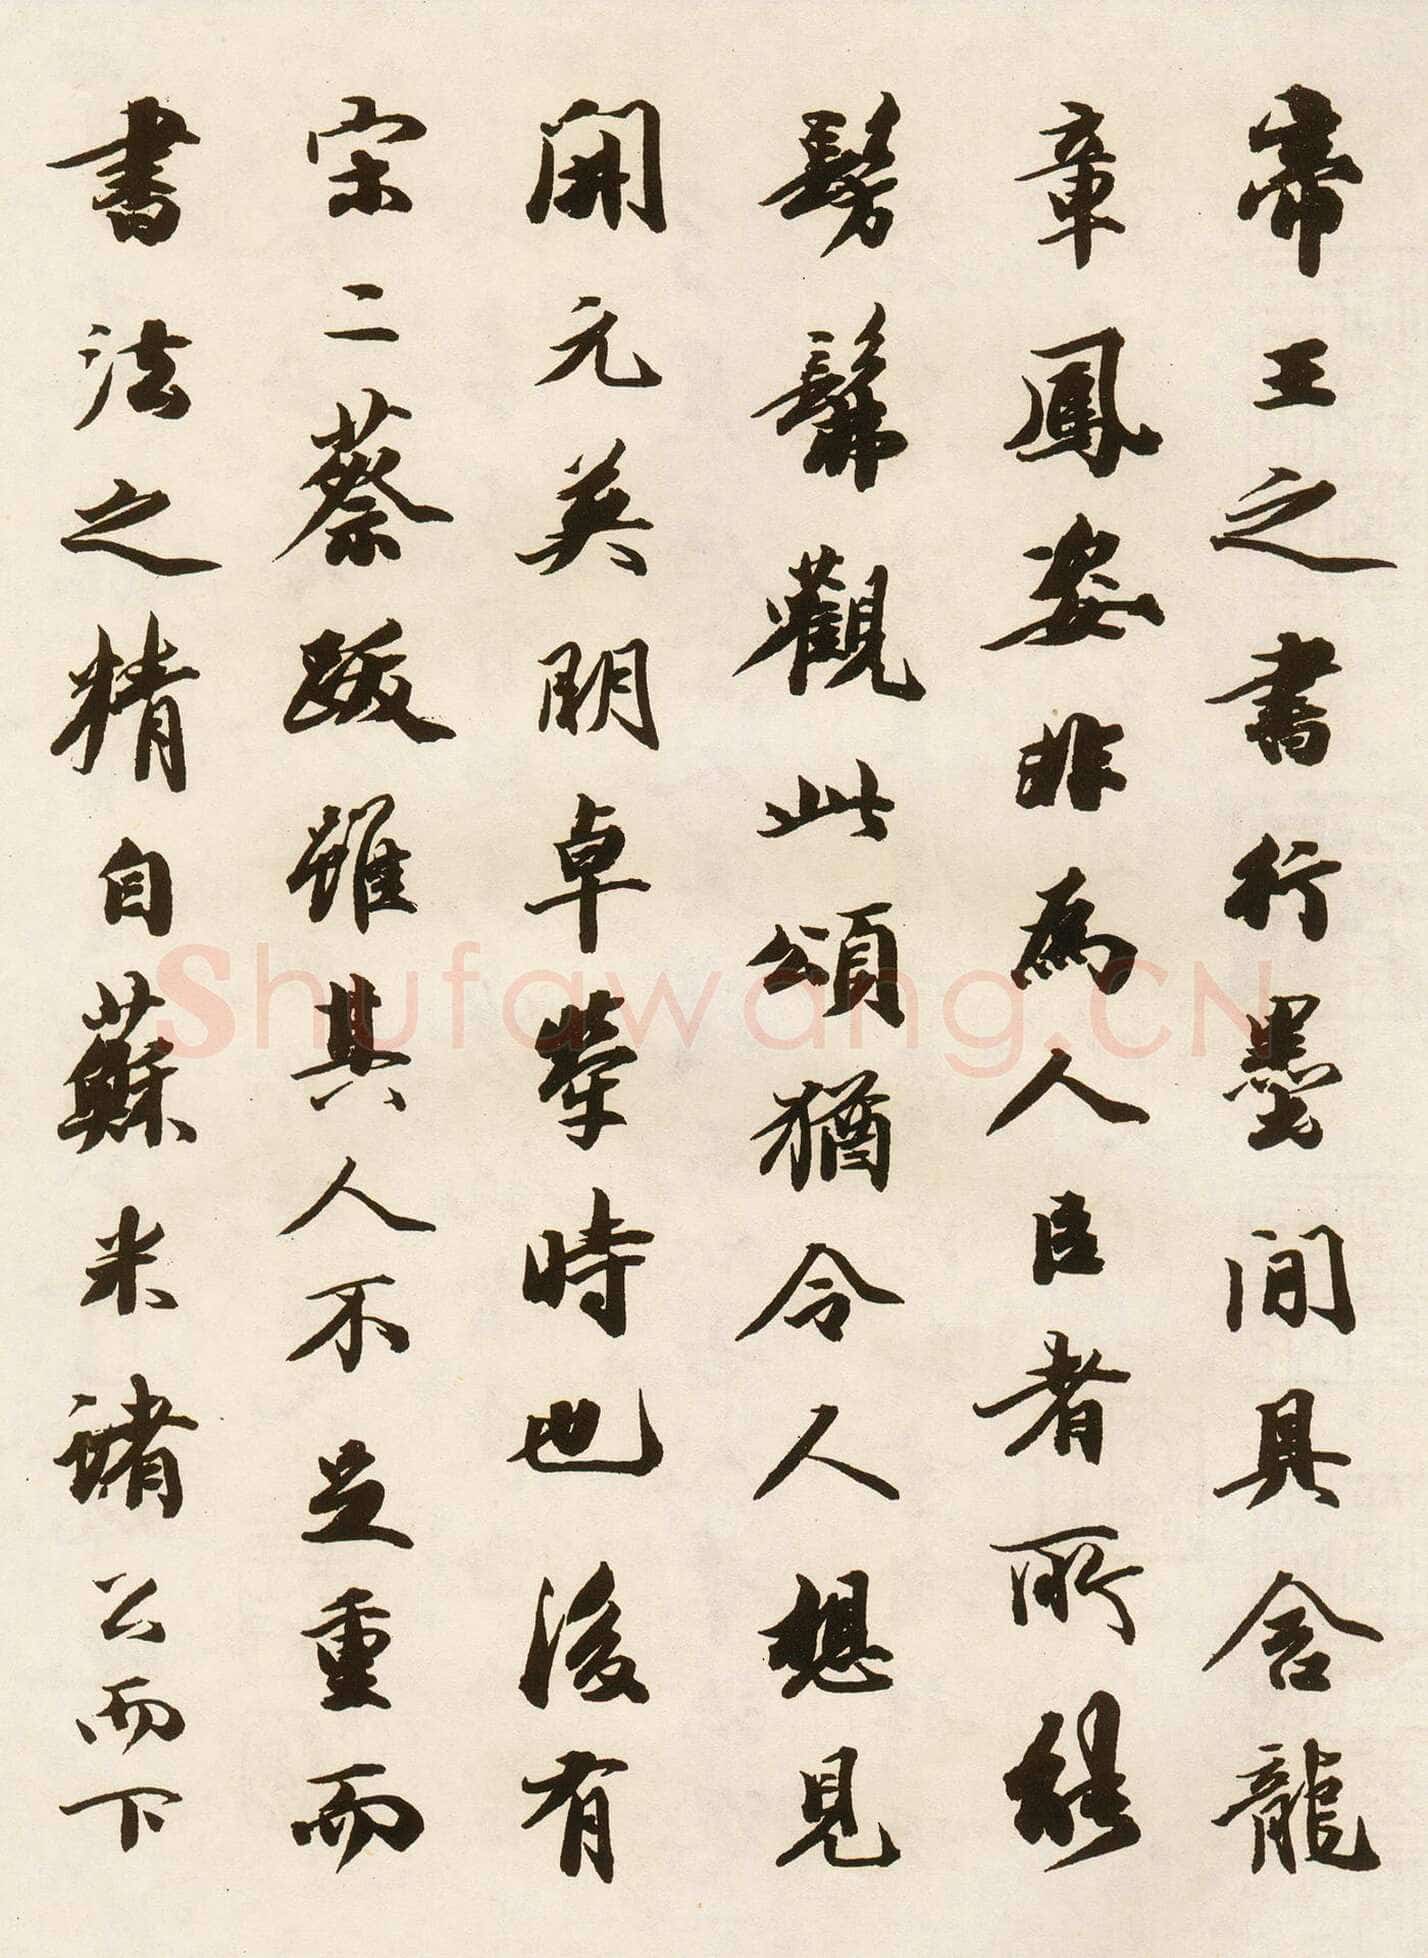 帝王之書行墨間具含龍
章鳳姿非為人臣者所能
髣髴觀此頌猶令人想見
開元英明卓犖時也後有
宋二蔡跋雖其人不足重而
書法之精自蘇米諸公而下
Shufawang.CN